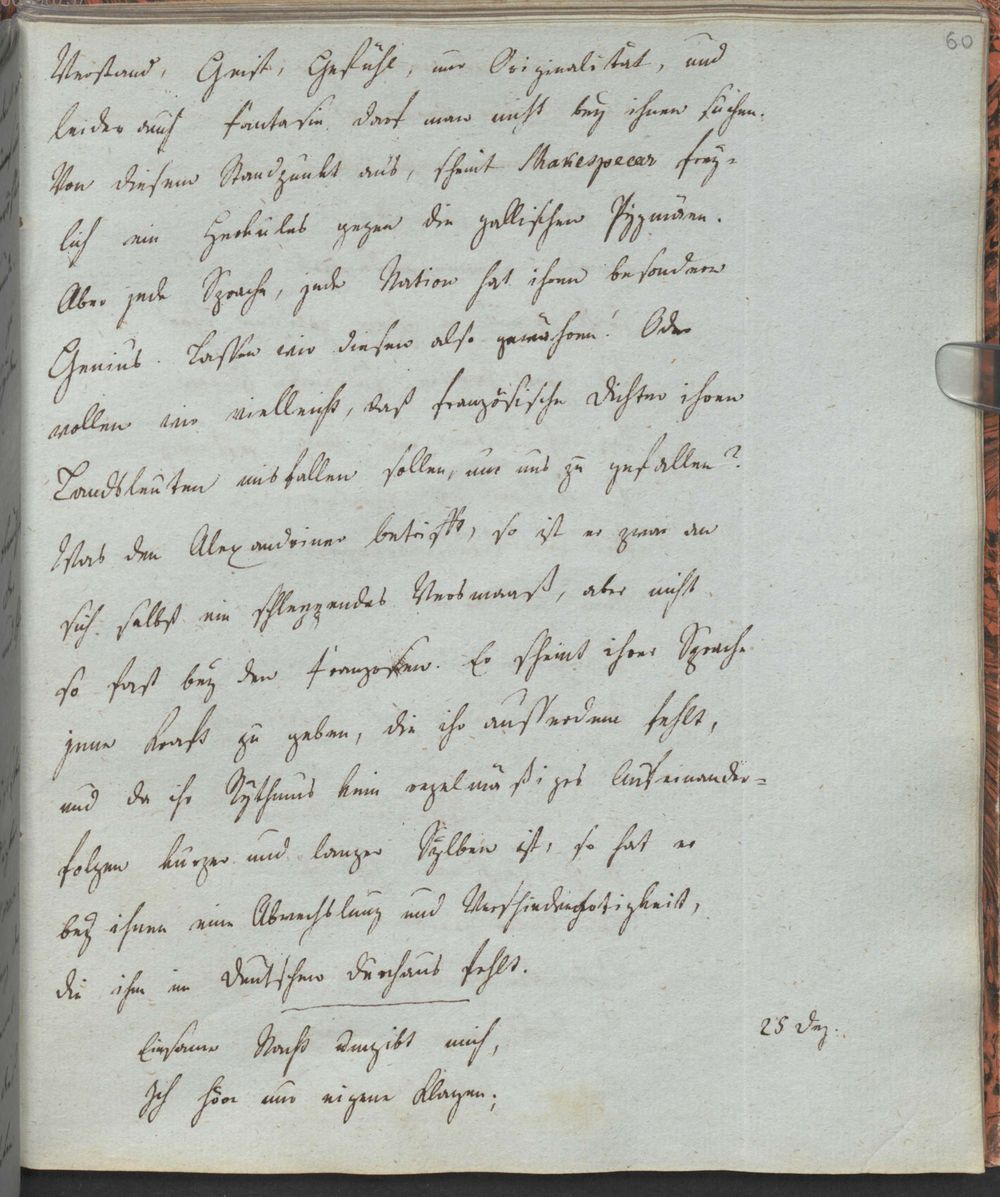 60
Verstand, Geist, Gefühl, nur Originalität, und
leider auch Fantasie darf man nicht bey ihnen suchen.
Von diesem Standpunkt aus, scheint Shakespecar frey-
lich ein Herkules gegen die gallischen Pygmäen.
Aber jede Sprache, jede Nation hat ihren besondern
Genius. Lassen wir diesen also gewähren! Oder
wollen wir vielleicht, daß französische Dichter ihren
Landsleuten misfallen sollen, um uns zu gefallen?
Was den Alexandriner betrifft, so ist er zwar an
sich selbst ein schleppendes Versmaaß, aber nicht
so fast bey den Franzosen. Er scheint ihrer Sprache
jene Kraft zu geben, die ihr ausserdem fehlt,
und da ihr Rythmus kein regelmäßiges Aufeinander-
folgen kurzer und langer Sylben ist, so hat er
bey ihnen eine Abwechslung und Verschiedenartigkeit,
die ihm im Deutschen durchaus fehlt.
25 Dez.
Einsame Nacht umgibt mich,
Ich höre nur eigene Klagen;